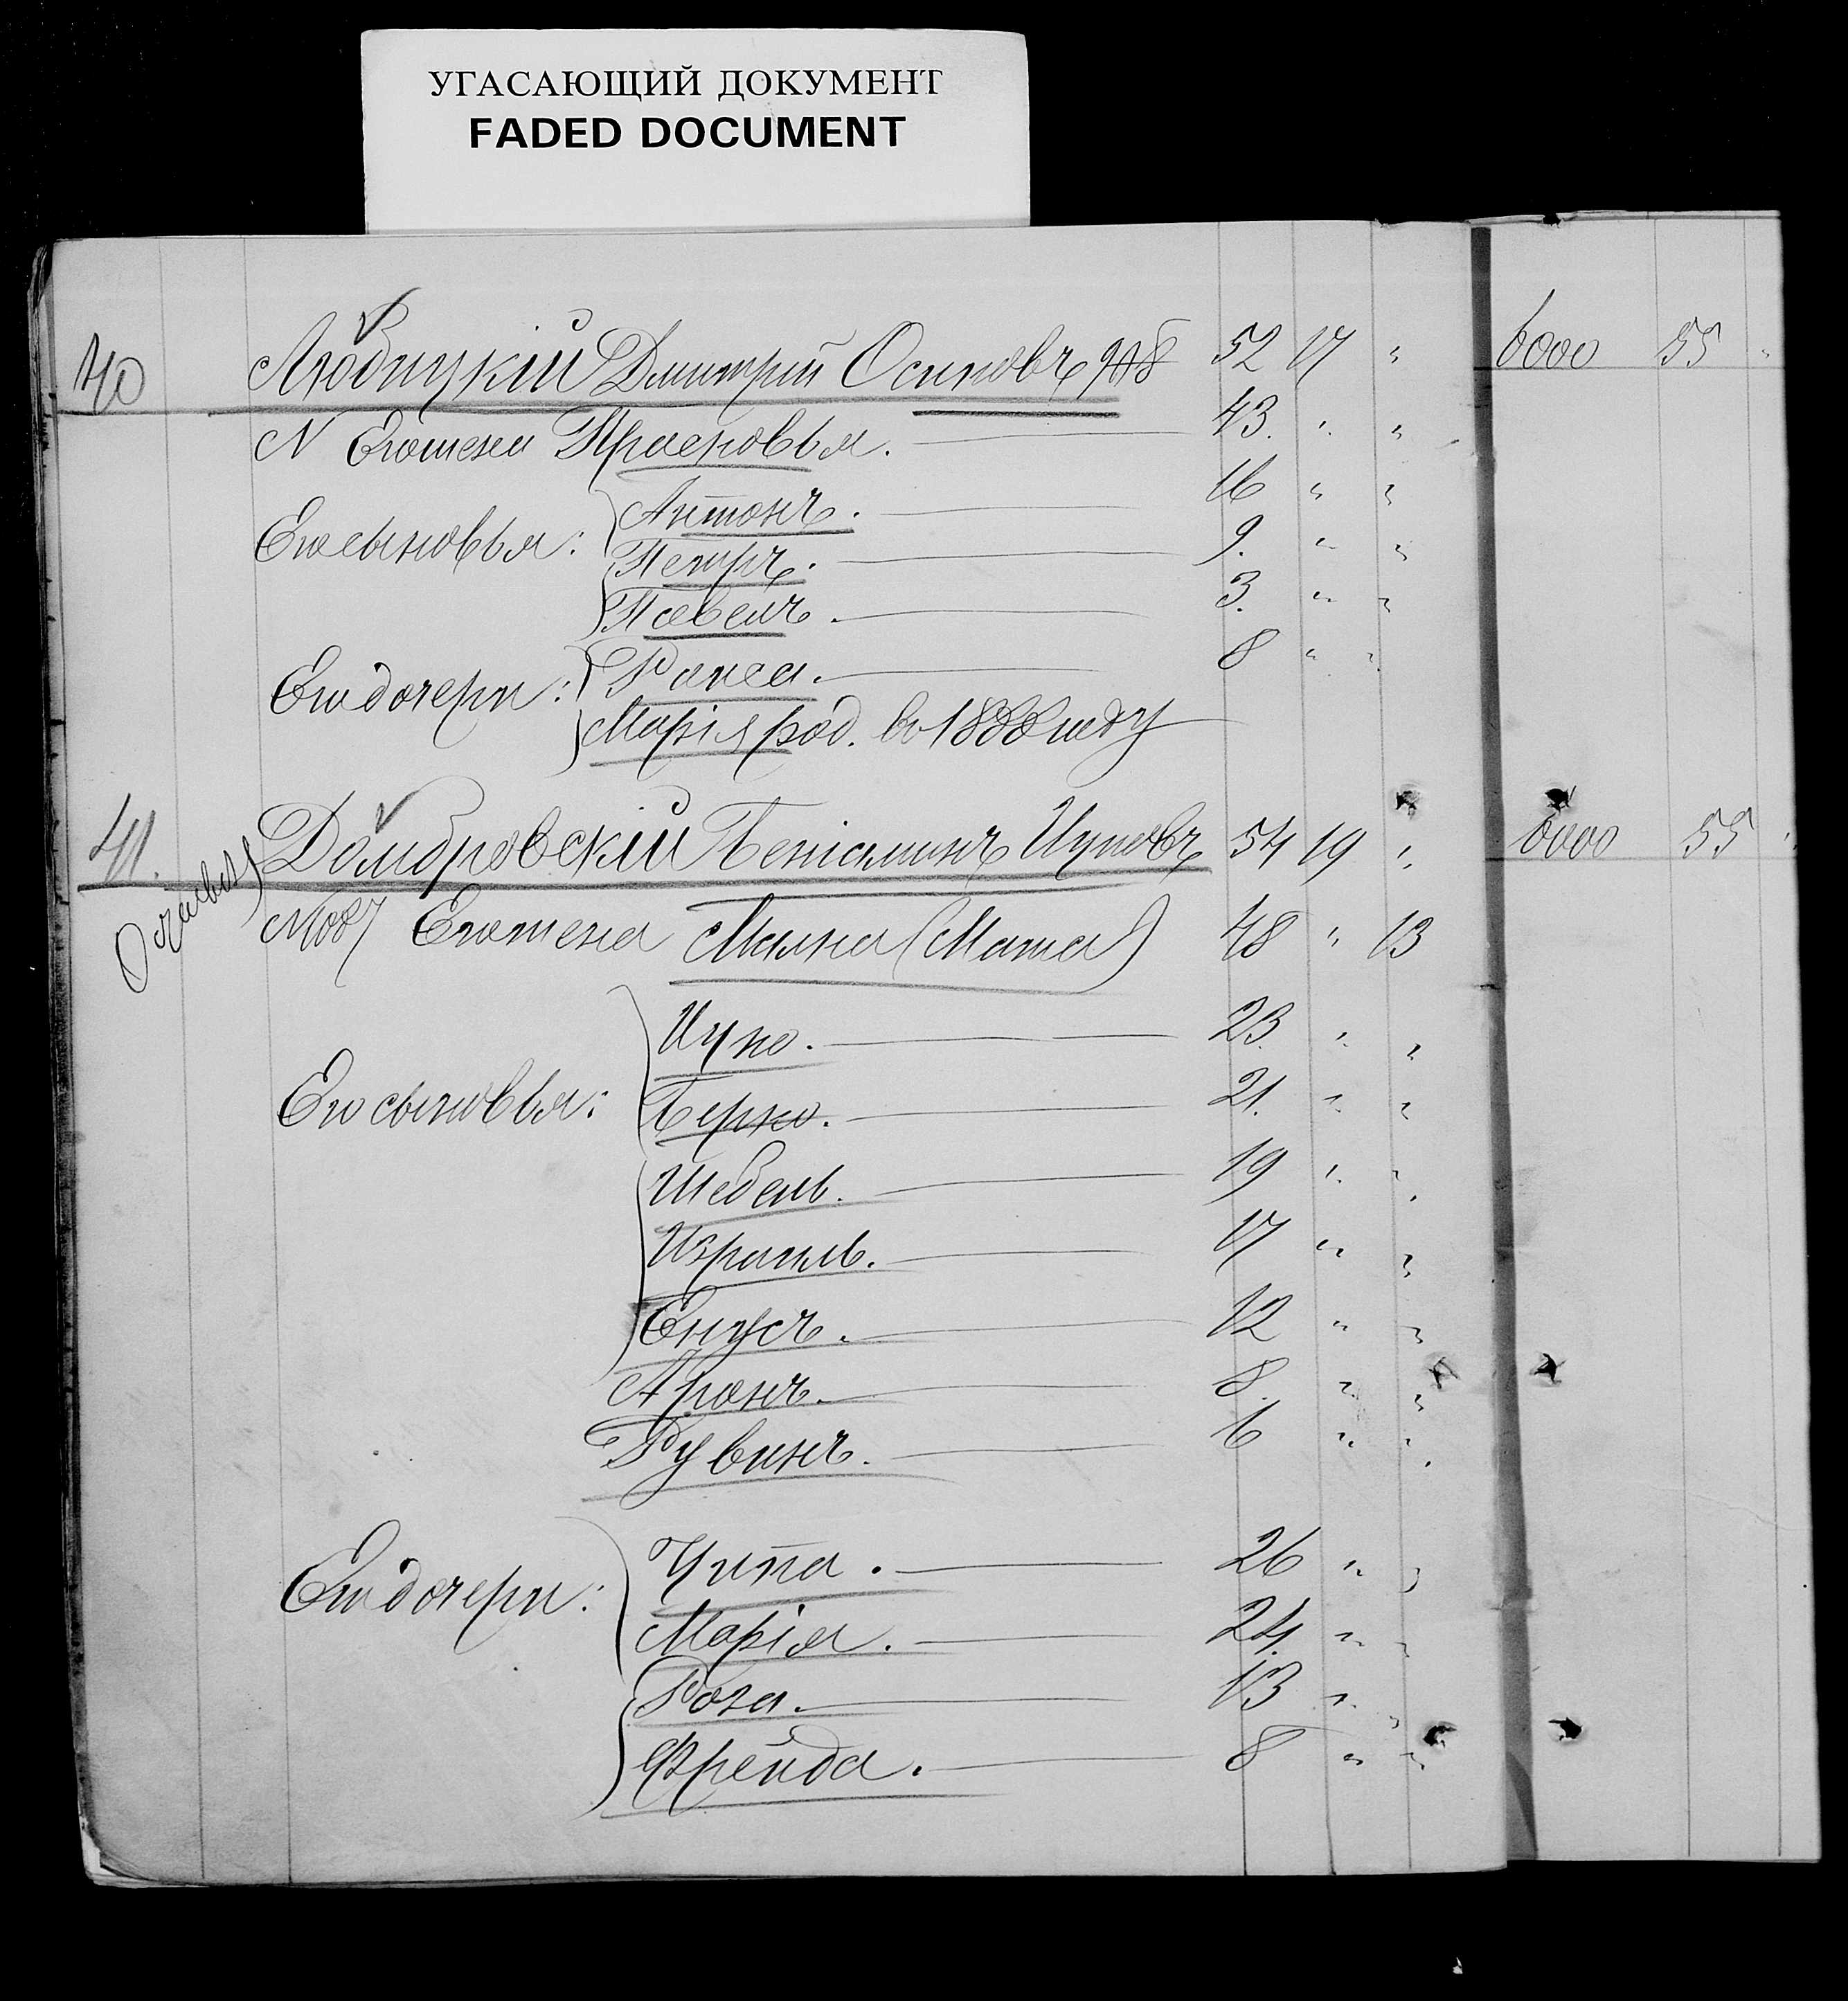 УГАСАЮЩИЙ ДОКУМЕНТ
FADED DOCUMENT
40 Любицкій Дмитрій Осиповъ 52 17 " 6000 55 "
N Его жена Прасковья. 43. " "
Его сыновья: Антонъ. 16 " "
Петръ. 9. " "
Павелъ. 3. " "
Его дочери: Раиса. 8 " "
Марія род. въ 1888 году
41. Домбровскій Беніаминъ Ицковъ 54 19 " 6000 55 "
Его жена Малка (Матла) 48 " 13
Ицко. 23. " "
Его сыновья: Берко. 21. " "
Шевель. 19 " "
Израиль. 17 " "
Енусъ. 12 " "
Аронъ. 8. " "
Рувинъ. 6 " "
Чипа. 26 " "
Его дочери: Марія. 24. " "
Роза. 13 " "
Фрейда. 8 " "